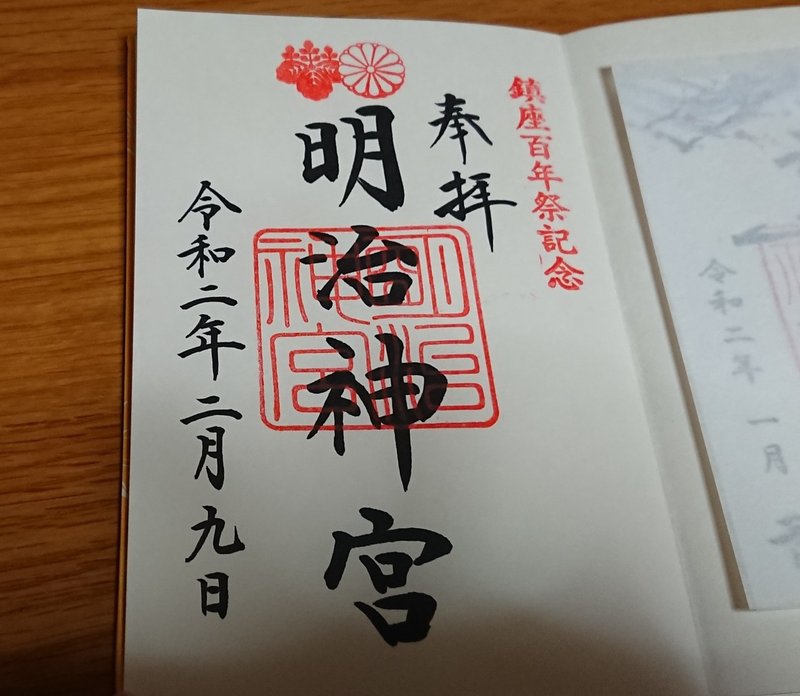 鎮座百年祭記念
奉拝
明治神宮
明治神宮
令和二年二月九日
令和二年
一月